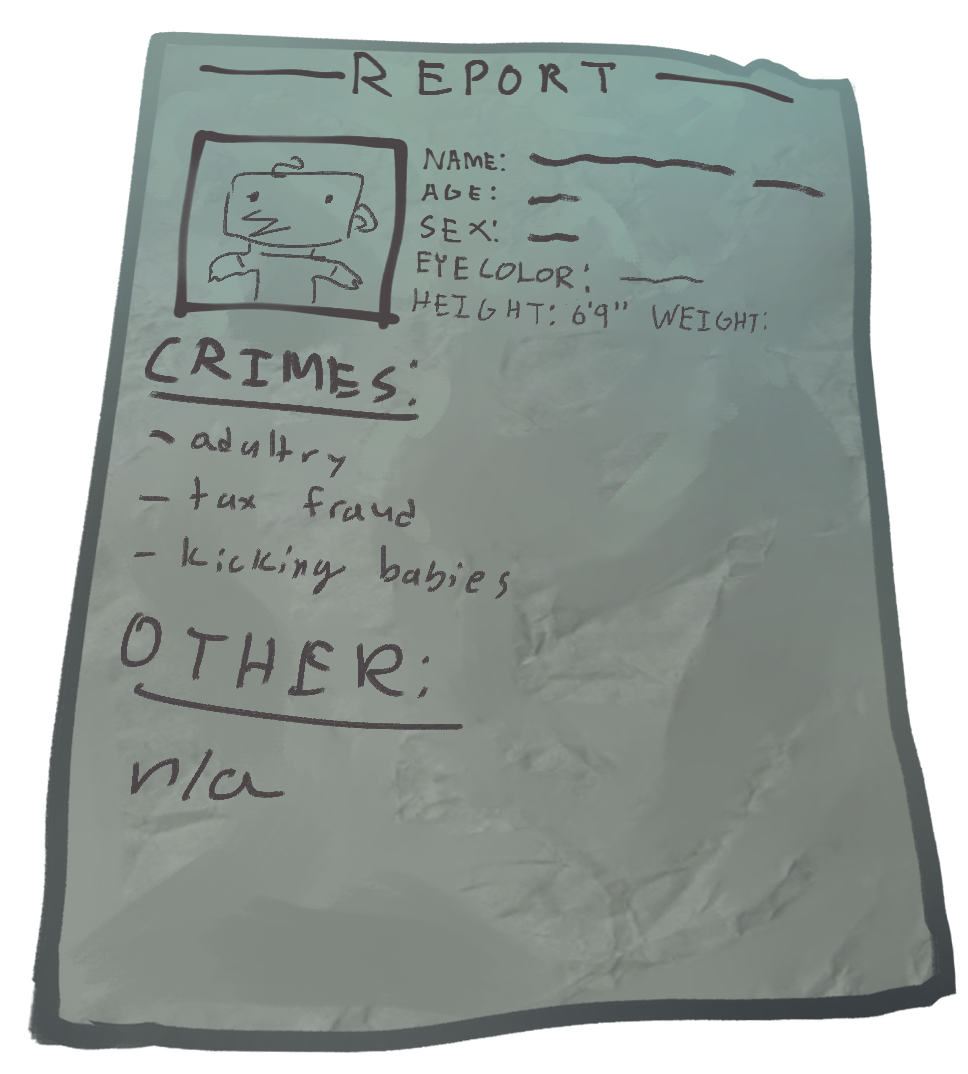 REPORT
NAME:
AGE:
SEX:
EYE COLOR:
HEIGHT: 6'9" WEIGHT:
CRIMES:
- adultry
- tax fraud
- kicking babies
OTHER:
n/a